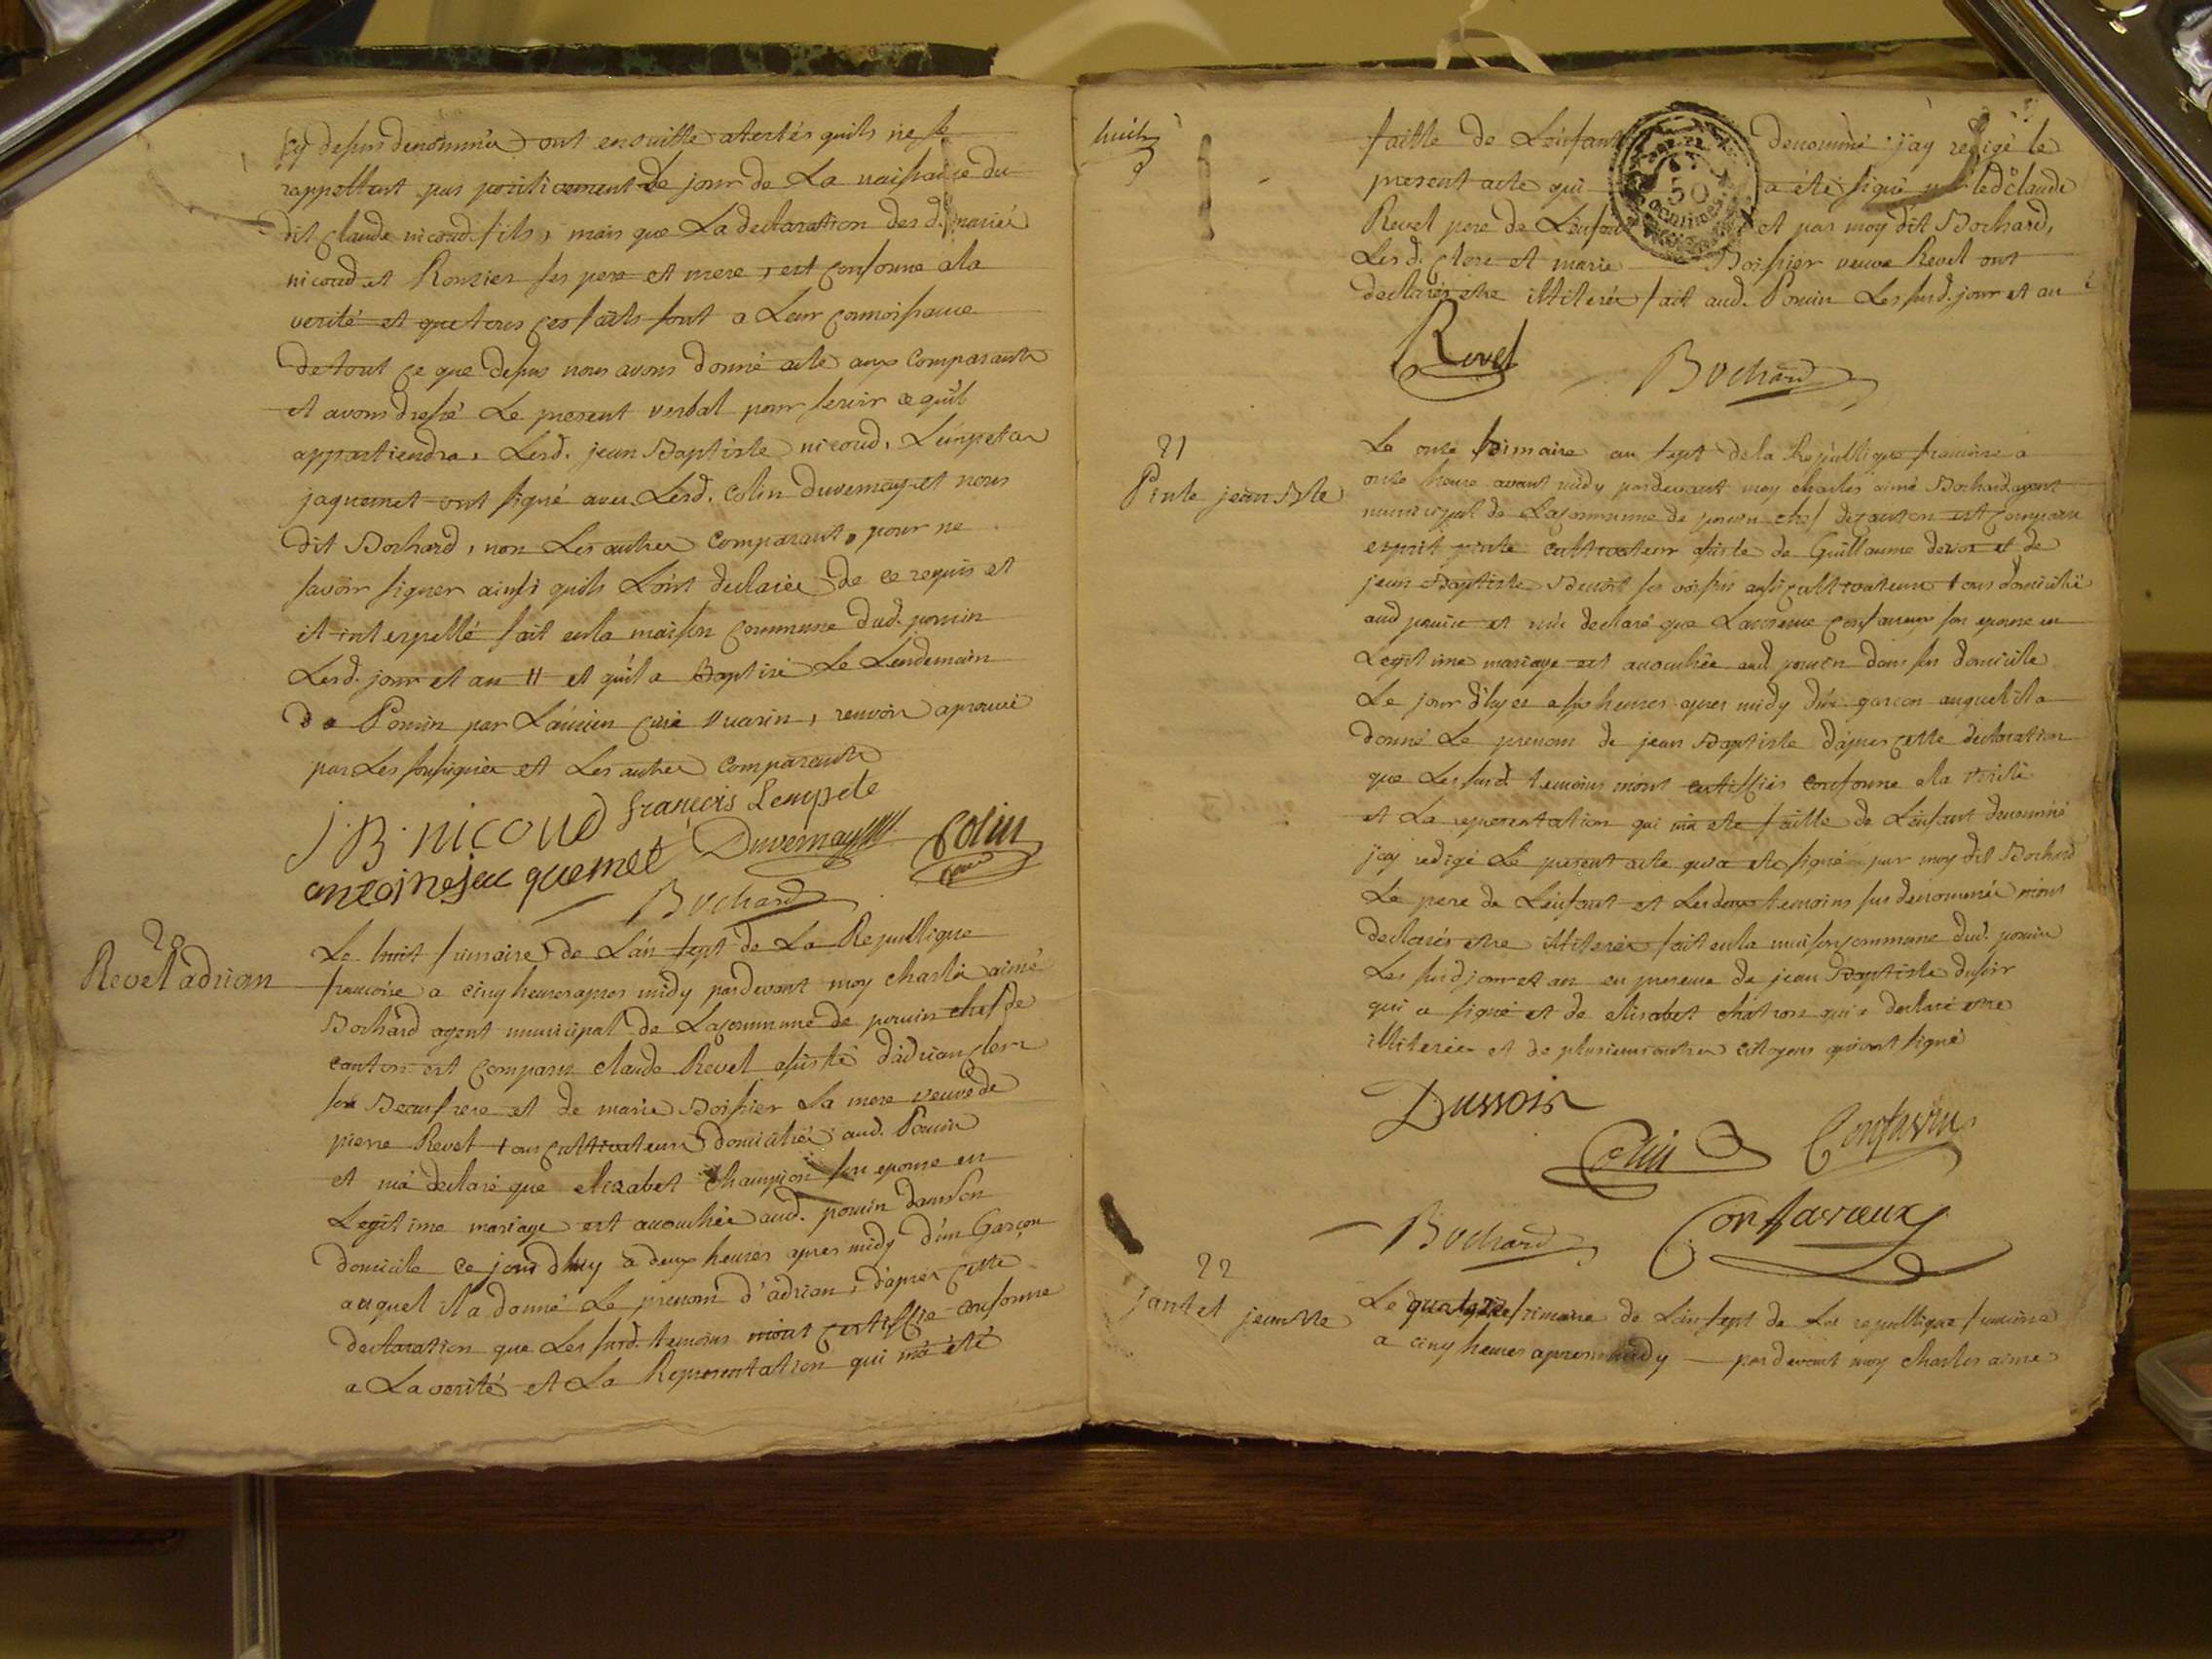 cy dessus denommés ont ensuitte atestés quils ne se
rappellent pas positivement le jour de La naissance du
dit claude nicoud fils, mais que La declaration des d. mariés
nicoud et Ronzier ses pere et mere, est conforme a la
verité et que tous ces faits sont a Leur connoissance
de tout ce que dessus nous avons donné acte aux comparants
et avons dressé Le present verbal pour servir ce qu'il
appartiendra, Lesd. jean Baptiste nicoud, Lempete
jaquemet ont signé avec Lesd. Colin Duvernay et nous
dit Bochard, non Les autres comparants pour ne
savoir signer ainsi quils L'ont declarée de ce requis et
interpellé fait en la maison commune dud. pouin
Lesd. jour et an # et qu'il a Baptisé Le Lendemain
par L'ancien curé, renvoi aprouvé
par Les soussignés et Les autres comparants
J. B. nicoud françois Lempete
antoine jacquemet Duvernay Colin
Bochard
20
Revel adrian
Le huit frimaire de L'an sept de La Republique
francoise a cinq heures apres midy pardevant moy charles aimé
Bochard agent municipal de La commune de pouin chef de
canton est comparu claude Revel assisté d'adrian clere
son Beaufrere et de marie Boissier sa mere veuve de
pierre Revel tous cultivateurs domiciliés aud. Pouin
et m'a declaré que elizabet champion son epouse en
Legitime mariage est accouchée aud. pouin dans son
domicile ce jourd'huy a deux heures apres midy d'un Garçon
auquel il a donné Le prenom d'adrian, d'apres cette
declaration que Les susd. temoins m'ont certiffie conforme
a La verité et La Representation qui m'a été
huit
faitte de L'enfant denommé j'ay redigé le
present acte qui a été signé par led. claude
Revel pere de L'enfant et par moy dit Bochard,
Lesd. clere et marie Boissier veuve Revel ont
declarés etre illiterés fait aud. Pouin Les susd. jour et an
50
centimes
Revel
Bochard
21
Pinte jean Bte
Le onze frimaire an sept de la Republique francoise a
onze heure avant midy pardevant moy charles aimé Bochard agent
municipal de La commune de pouin chef de canton est comparu
esprit pinte cultivateur assisté de Guillaume et de
jean Baptiste Benoit ses voisins aussi cultivateurs tous domiciliés
aud pouin et m'a declaré que Laurence confavreux son epouse en
Legitime mariage est accouchée aud. pouin dans son domicile
Le jour d'hyer a six heures apres midy d'un garcon auquel il a
donné Le prenom de jean Baptiste d'apres cette declaration
que Les susd. temoins m'ont certiffiés conforme a la verité
et La representation qui m'a ete faitte de L'enfant denommé
j'ay redigé Le present acte qui a ete signé par moy dit Bochard
Le pere de L'enfant et Les deux temoins sus denommés m'ont
declarés etre illiterés fait en la maison commune dud. pouin
Les susd jour et an en presence de jean Baptiste dusoir
qui a signé et de elisabet chatron qui a declaré etre
illiterée et de plusieurs autres citoyens qui ont signé
Dussoir
Colin
Bochard Confavreux
22
jantet jean Bte
Le quatorze frimaire de L'an sept de La republique francoise
a cinq heures apres midy — pardevant moy charles aimé